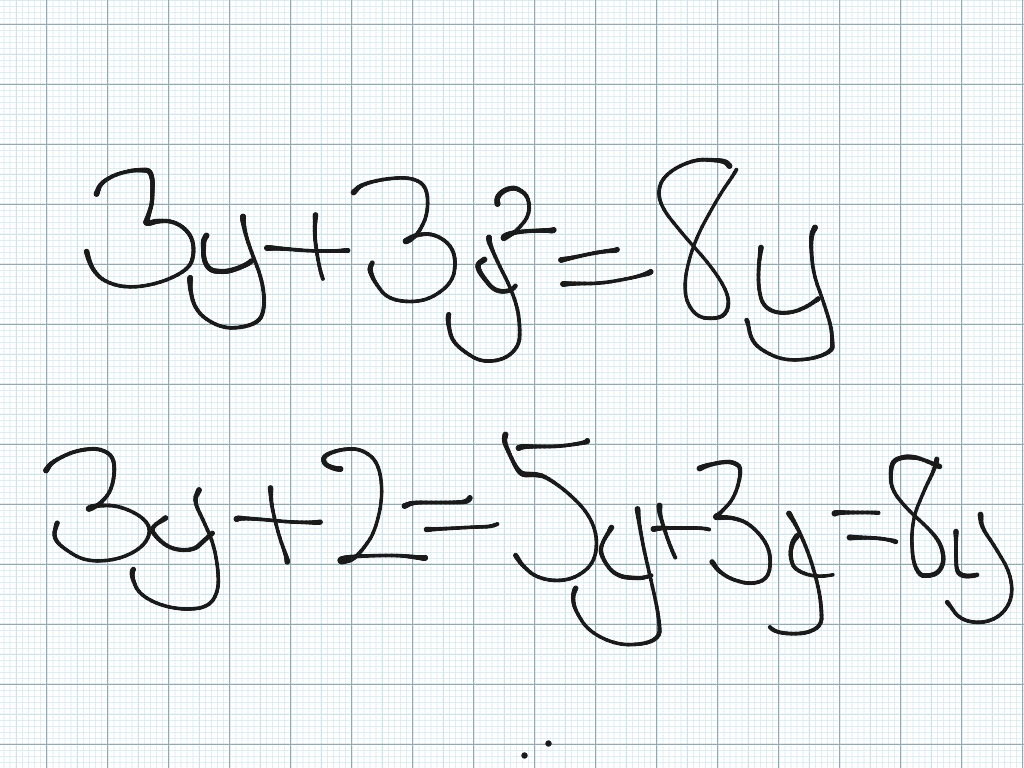 3y+3y²=8y
3y+2=5y+3y=8y